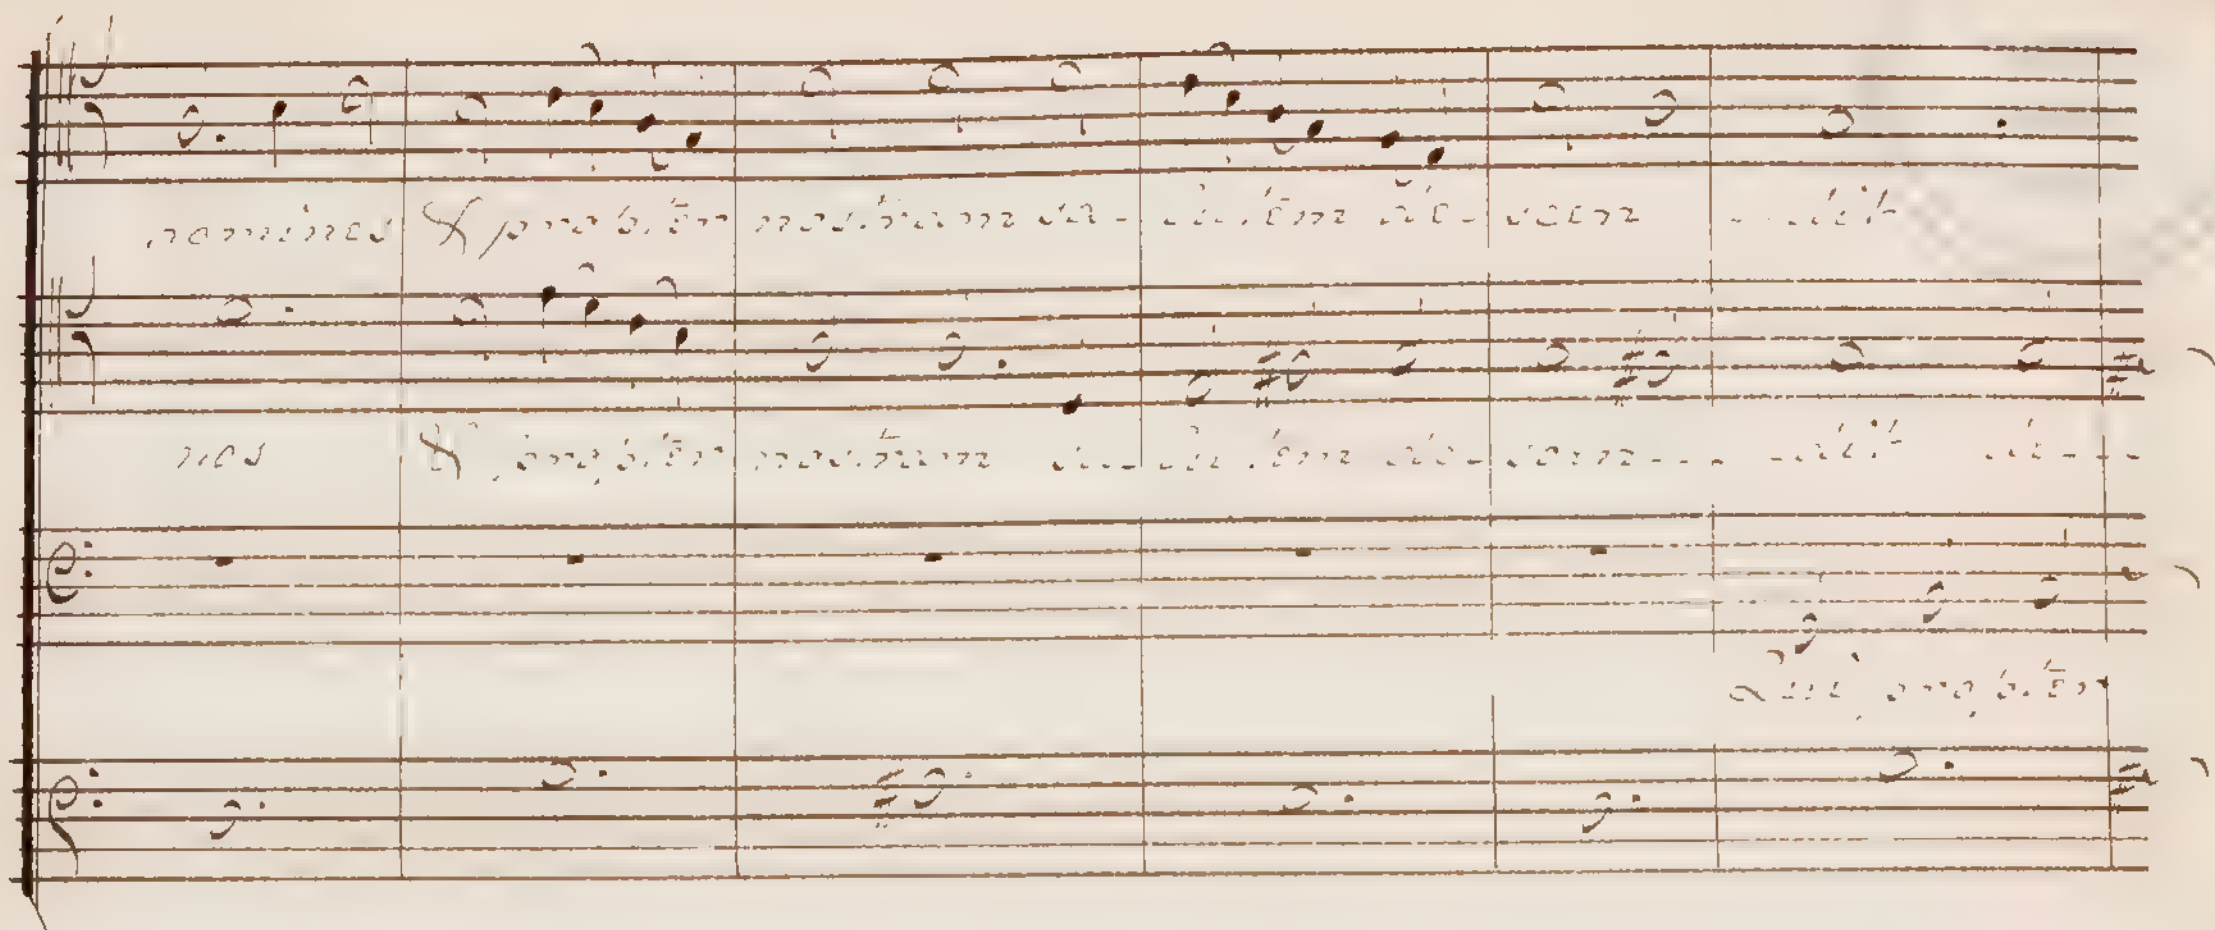 homines & propter nostram sa- lutem de- scen - dit
nes & propter nostram sa- lu tem de- scen - - - - dit de - -
Qui propter